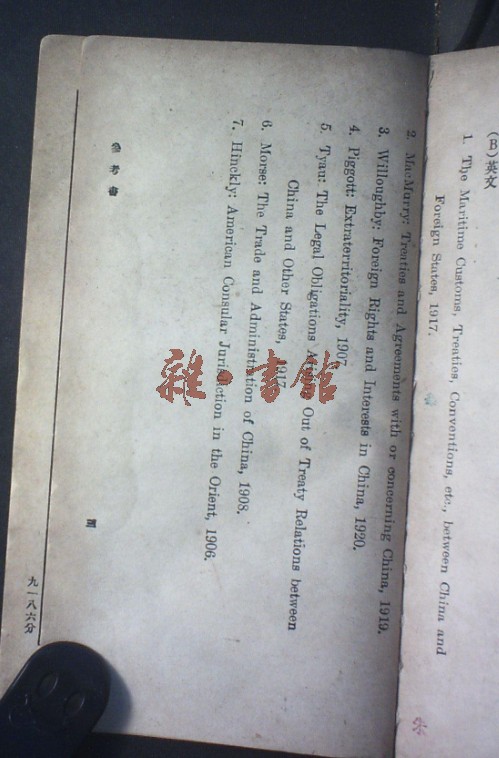 (B)英文
1. The Maritime Customs, Treaties, Conventions, etc., between China and
Foreign States, 1917.
2. MacMurry: Treaties and Agreements with or concerning China, 1919.
3. Willoughby: Foreign Rights and Interests in China, 1920.
4. Piggott: Extraterritoriality, 1907
5. Tyau: The Legal Obligations Arising Out of Treaty Relations between
China and Other States, 1917.
6. Morse: The Trade and Administration of China, 1908.
7. Hinckly: American Consular Jurisdiction in the Orient, 1906.
參考書
四
九一八六分
雜·書館